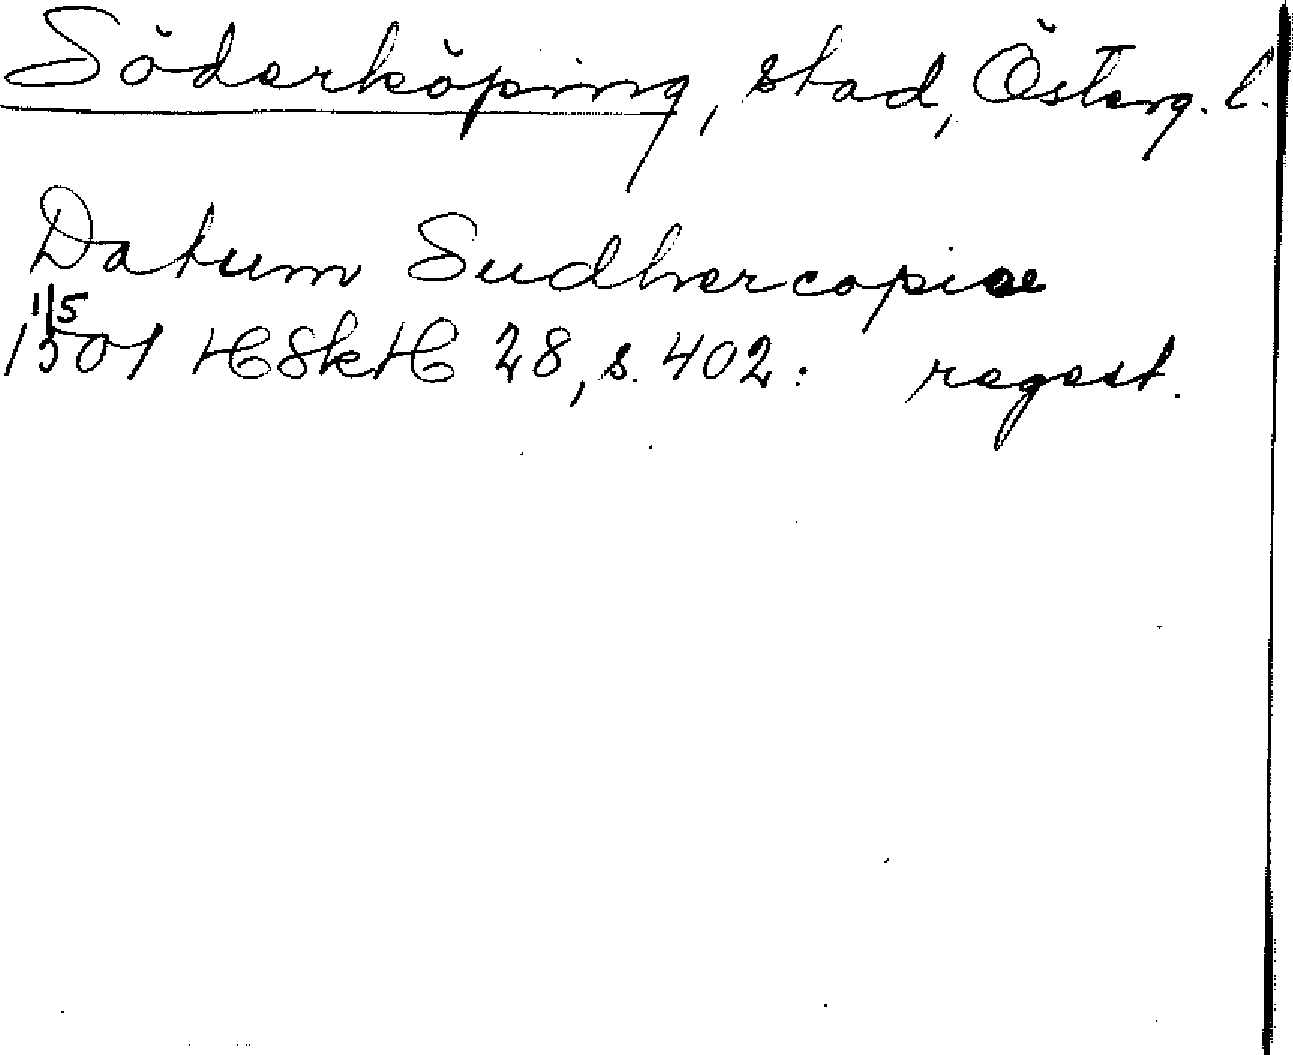 Söderköping, stad, Österg. l.
Datum Sudhercopiae
1/5
1501 HSkH 28, s. 402: regest.